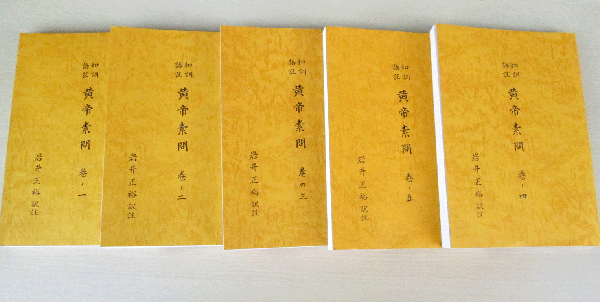 和訓
語註
黄帝素問 巻ノ一
岩井正裕訳註
和訓
語註
黄帝素問 巻ノ二
岩井正裕訳註
和訓
語註
黄帝素問 巻の三
岩井正裕訳註
和訓
語註
黄帝素問 巻ノ五
岩井正裕訳註
和訓
語註
黄帝素問 巻ノ四
岩井正裕訳註